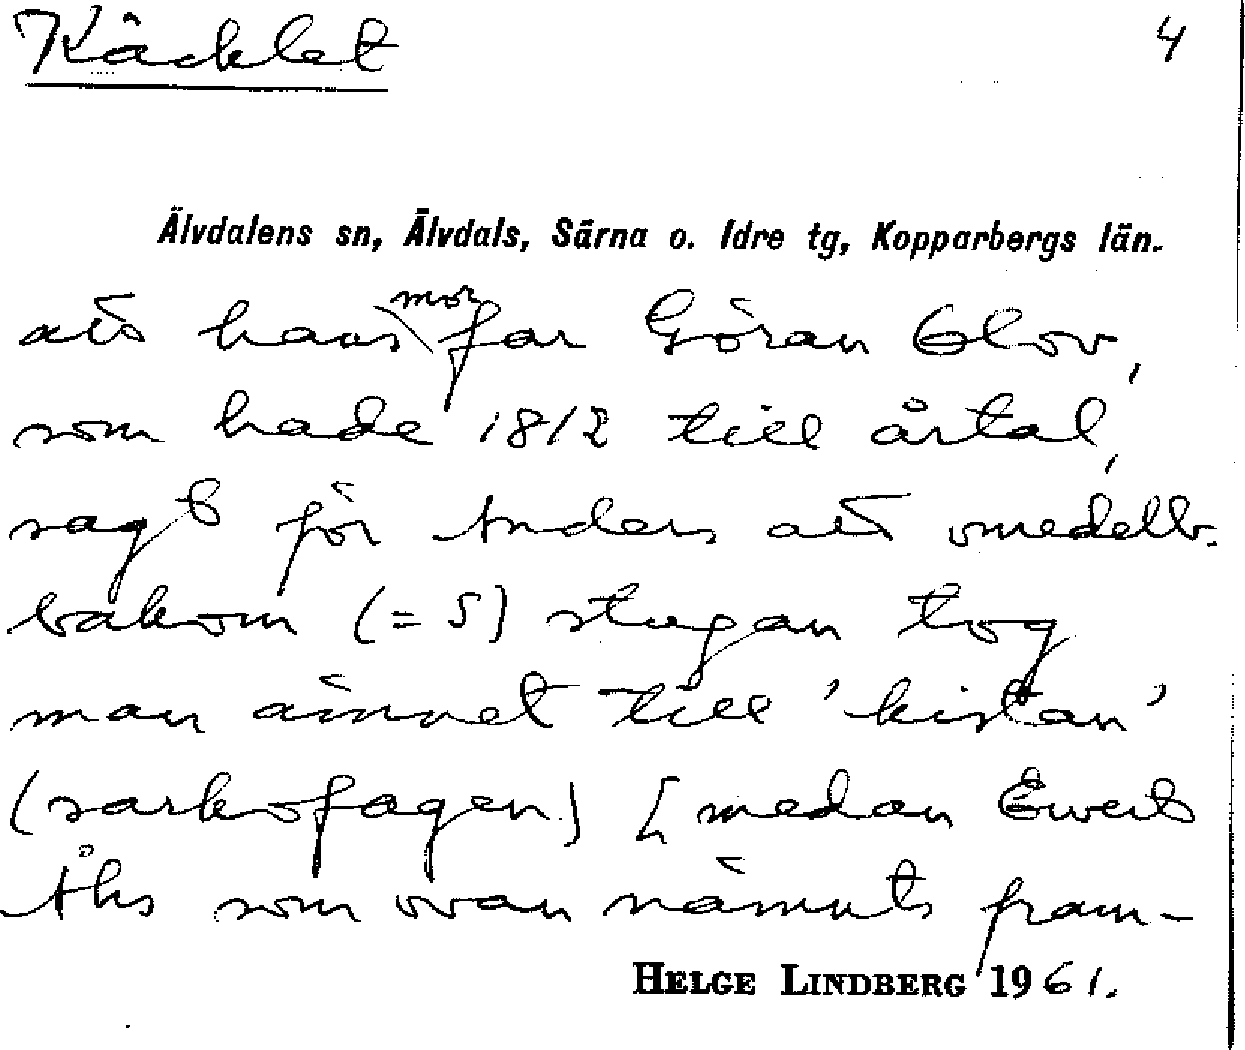 Käcklet 4
Älvdalens sn, Älvdals, Särna o. Idre tg, Kopparbergs län.
att hans morfar Göran Olov,
som hade 1812 till årtal,
sagt för Anders att omedelb.
bakom (= S) stugan tog
man ämnet till 'kistan'
(sarkofagen) [medan Evert
Åhs som ovan nämnts fram-
HELGE LINDBERG 1961.